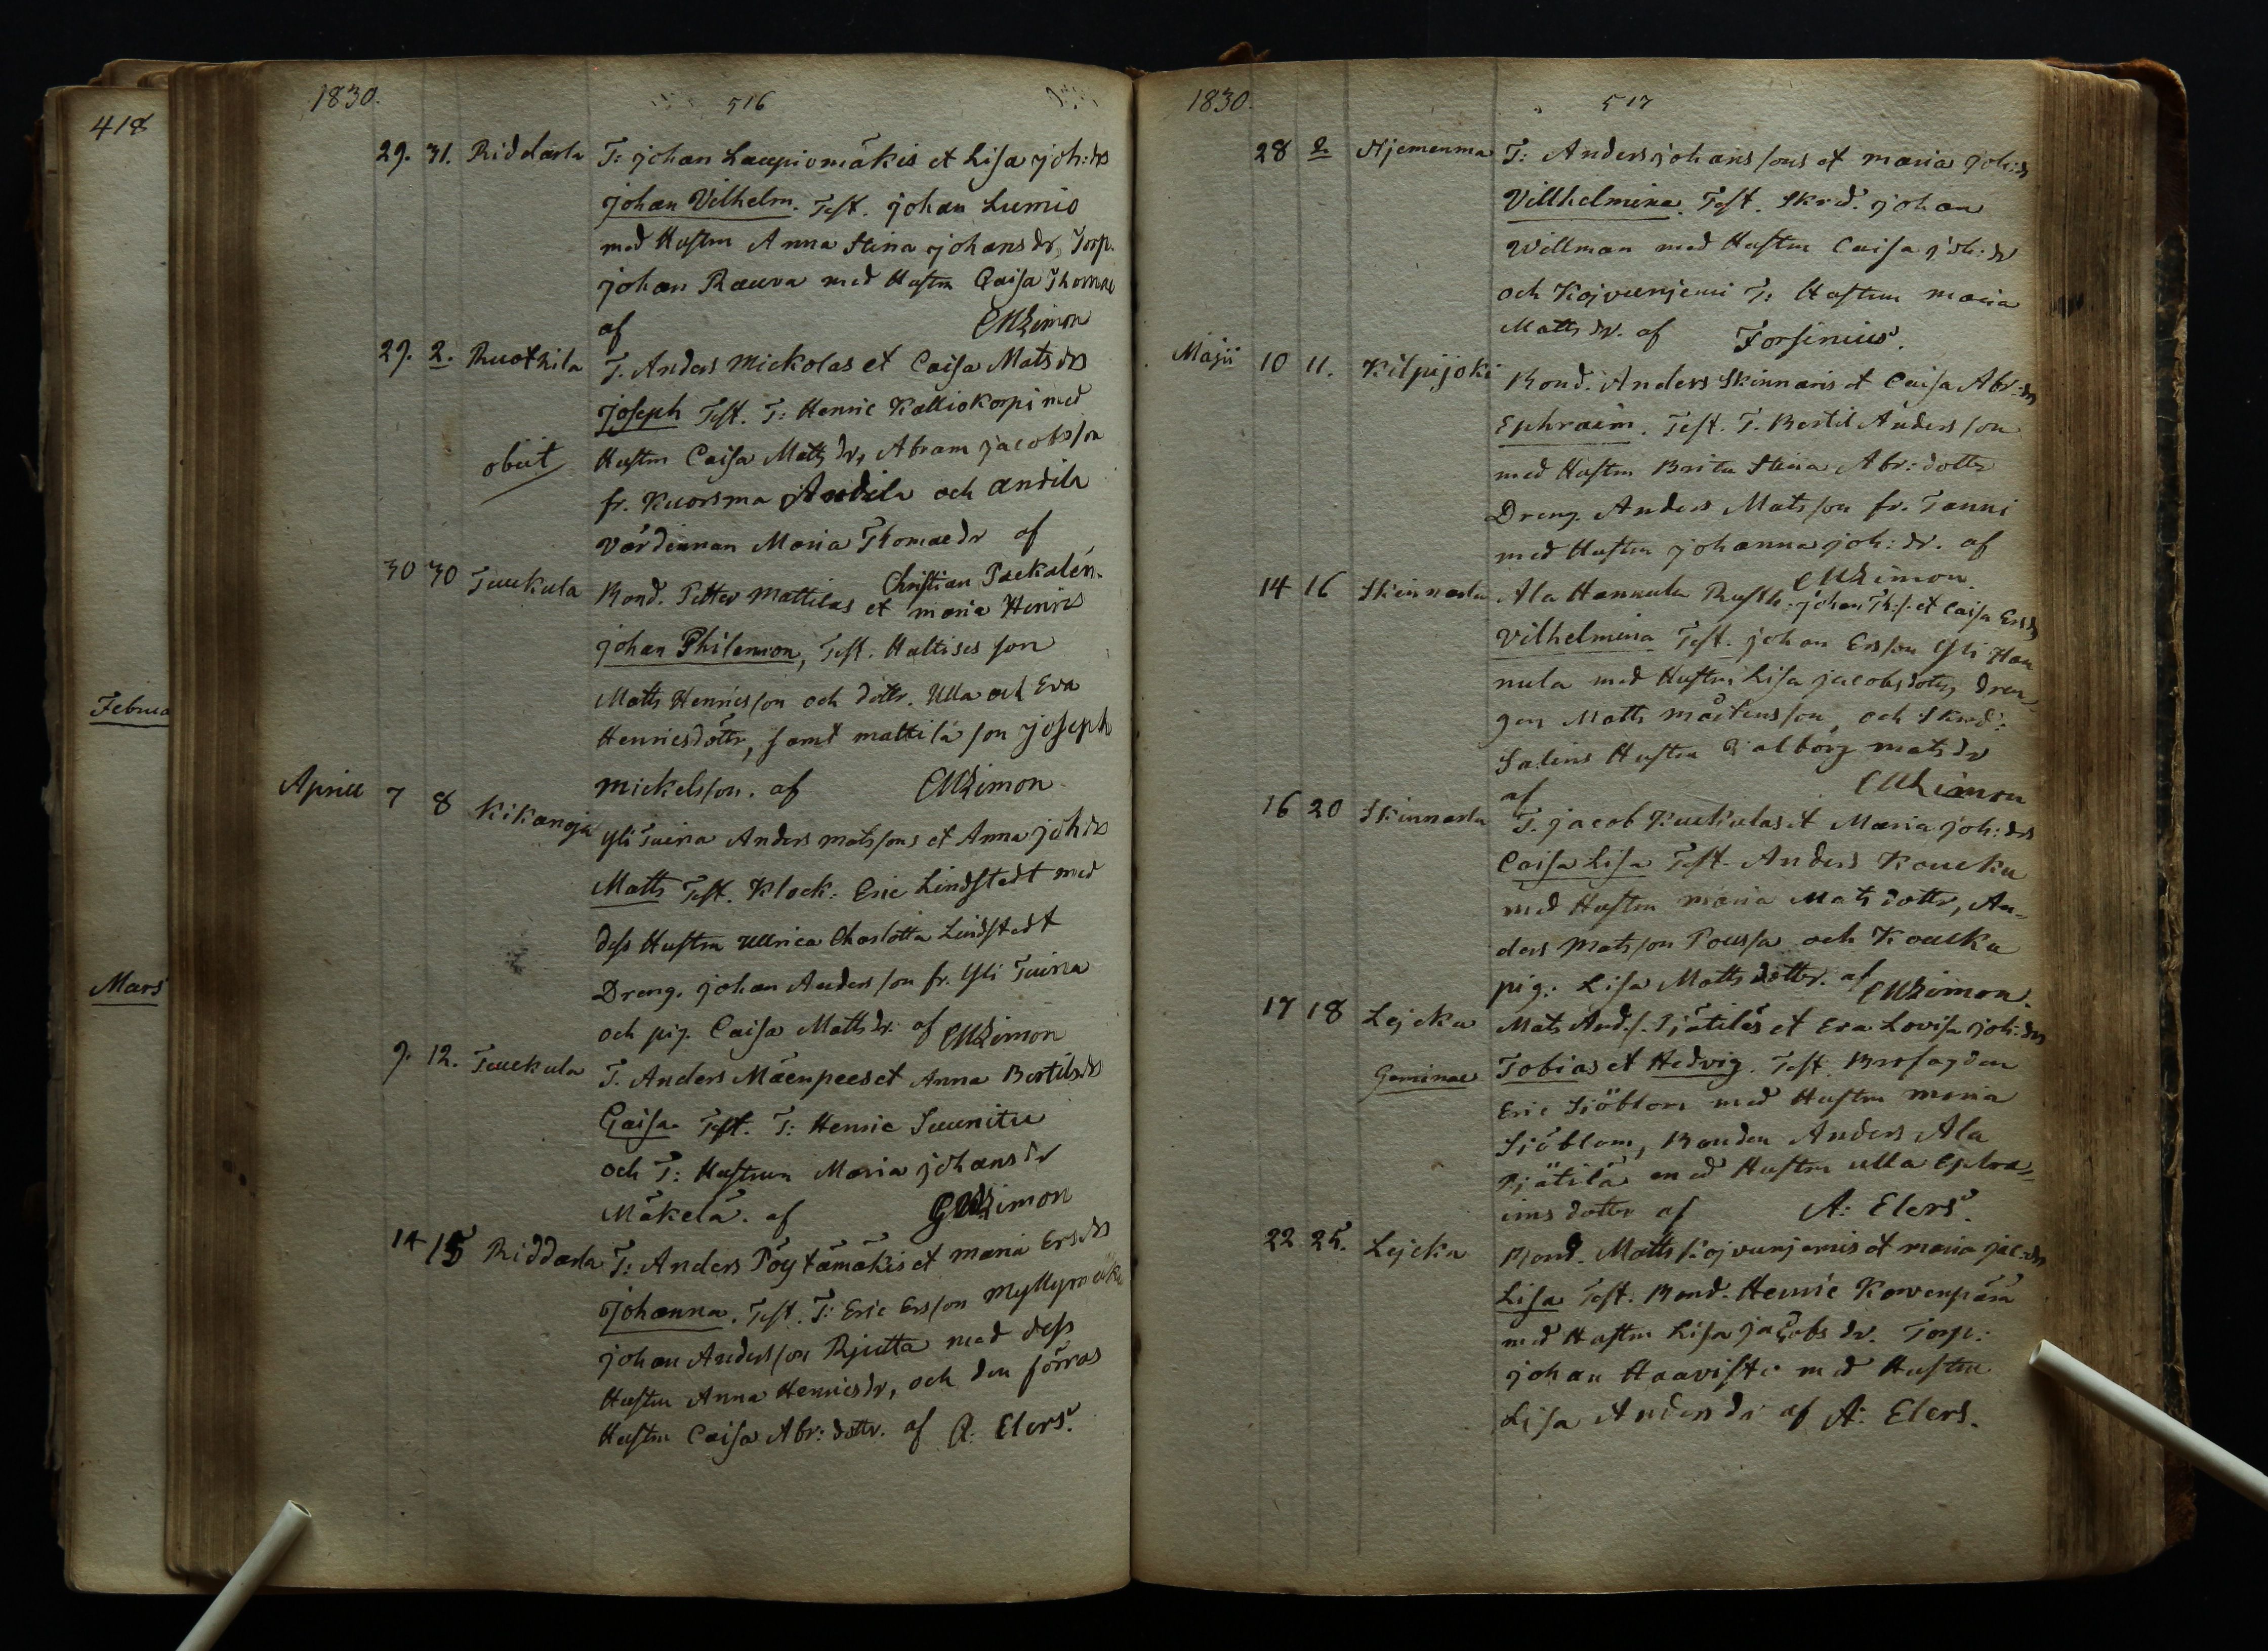 418
Februa
Mars
1830. 516
29. 31. Riddarla T: johan Laupiomäkis et Lisa joh:drs
johan Vilhelm. Test. johan Lumio
med Hustru Anna Stina johans dr, Torp.
johan Rauva med Hustru Caisa Thomae
af CMLimon
29. 2. Ruothila T. Anders Mickolas et Caisa Mats drs
Joseph Test. T: Henric Kalliokorpi med
obiit Hustru Caisa Matts dr, Abram jacobsson
fr. Kuorsma Andila och andila
värdinnan Maria Thomaedr af
Christian Paekalén.
30 30 Tuukula Bond. Petter Mattilas et maria Henrics
johan Philemon, Test. Haltises son
Matts Henricsson och dottr. Ulla och Eva
Henricsdöttr, samt mattilä son joseph
mickelsson. af CMLimon
Aprill 7 8 Kikanoja Yli Tuina Anders matssons et Anna joh drs
Matts Test. Klock: Eric Lindstedt med
dess Hustru Ullrica Charlotta Lindstedt
Dreng. johan Andersson fr. Yli Tuina
och pig. Caisa Matts dr. af CMLimon
9. 12. Tuukula T. Anders Mäenpees et Anna Bertils drs
Caisa Test. T: Henric Suunitu
och T: Hustrun Maria johans dr
Mäkelä. af CMLimon
14 15 Riddarla T: Anders Pöytämäkis et maria Ers drs
Johanna. Test. T: Eric Ersson Myllymäki
johan Andersson Rjutta med dess
Hustru Anna Henrics dr, och den förras
Hustru Caisa Abr: dottr. af A: Elers.
1830. 517
28 2 Njemenma T: Anders johanssons et maria joh:ds
Villhelmina. Test. Skrd. johan
Willman med Hustru Caisa joh: dr
och Kojvunjemi T: Hustrun maria
Matts dr. af Forsenius.
Majii 10 11. Kilpijoki Bond. Anders Skinnaris et Caisa Abr:drs
Ephraim. Test. T. Bertil Andersson
med Hustru Brita Stina Abr: dottr
Dreng. Anders Matsson fr. Tanni
med Hustru johanna joh: dr. af
CMLimon
14 16 Skinnarla Ala Hannula Rusth. johan Th:s: et Caisa Ers ds
Vilhelmina Test. johan Ersson Yli Han
nula med Hustru Lisa jacobsdottr, dren-
gen Matts mårtensson, och Skrd:
Salins Hustru Valborg mats dr
af CMLimon
16 20 Skinnarla T. jacob Kuckulas et Maria joh: drs
Caisa Lisa Test. Anders Koucku
med Hustru maria Mats dottr, An-
ders Matsson Poussa och Koucku
pig: Lisa Matts dottr. af CMLimon.
17 18 Lejcku Mats And.s. Pjätiläs et Eva Lovisa joh: drs
Geminae Tobias et Hedvig. Test. Brofogden
Eric Sjöblom med Hustru maria
Sjöblom, Bonden Anders Ala
Pjätilä med Hustru Ulla Ephra-
ims dotter af A: Elers.
22 25. Lejcku Bond. Matts Kojvunjemis et maria jac:drs
Lisa Test. Bond. Henric Korvenpää
med Hustru Lisa jacobs dr. Torp:
johan Haavisto med Hustru
Lisa Anders dr af A: Elers.